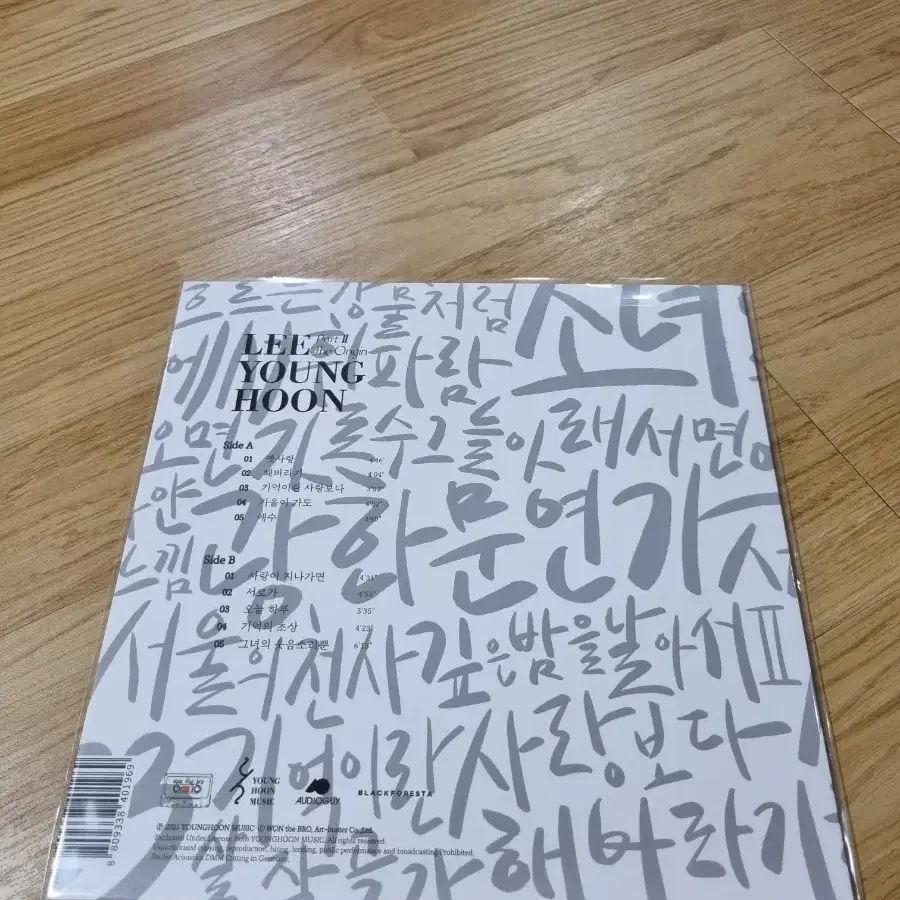 흐르는강물처럼
소녀
파람
LEE Part II
The Origin
YOUNG
HOON
오면
수그늘
잇
래서면
Side A
01 옛사랑 4'46"
02 해바라기 4'04"
03 기억이란 사랑보다 3'53"
04 가을이 가도 4'02"
05 애수 3'40"
연가
느낌
Side B
01 사랑이 지나가면 4'31"
02 서로가 4'53"
03 오늘 하루 3'35"
04 기억의 초상 4'23"
05 그녀의 웃음소리뿐 6'13"
서울의천사깊은밤을날아서II
억이란사랑보다
YOUNG
HOON
MUSIC
AUDIOGUY
BLACKFORESTA
℗ 2021 YOUNGHOON MUSIC © WON the BRO, Art-buster Co.,Ltd.
Exclusive Under License from YOUNGHOON MUSIC. All rights reserved.
Unauthorized copying, reproduction, hiring, lending, public performance and broadcasting Prohibited.
Pauler Acoustics DMM Cutting in Germany.
해바라기
8 809338 401969